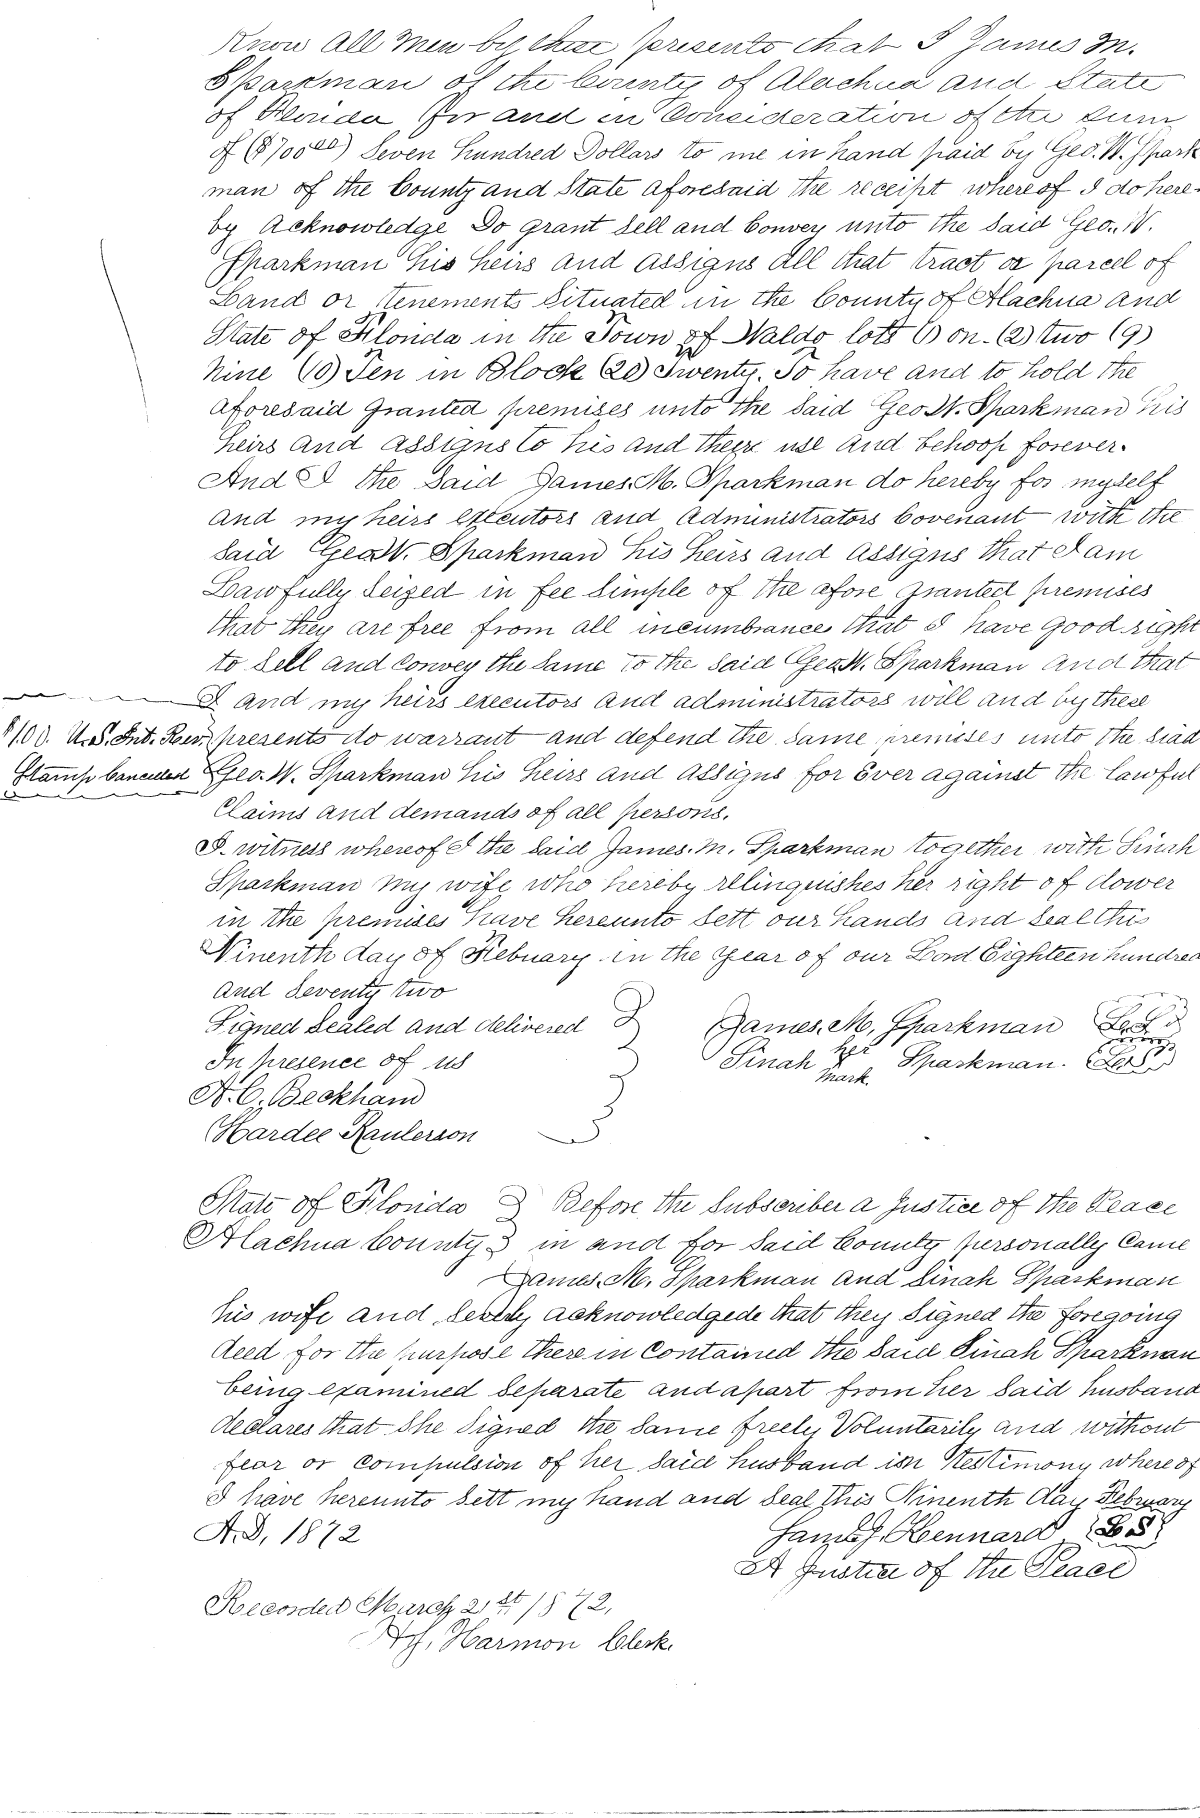 Know All Men by these presents that I James M.
Sparkman of the County of Alachua and State
of Florida for and in Consideration of the sum
of ($700.00) Seven hundred Dollars to me in hand paid by Geo. W. Spark
man of the County and State aforesaid the receipt whereof I do here-
by Acknowledge Do grant Sell and Convey unto the Said Geo. W.
Sparkman his heirs and assigns all that tract or parcel of
Land or tenements Situated in the County of Alachua and
State of Florida in the Town of Waldo lots (1) on- (2) two (9)
Nine (10) Ten in Block (20) Twenty. To have and to hold the
aforesaid granted premises unto the Said Geo W. Sparkman his
heirs and assigns to his and there use and behoof forever.
And I the Said James. M. Sparkman do hereby for myself
and my heirs executors and Administrators Covenant with the
Said Geo W. Sparkman his heirs and assigns that I am
Lawfully Seized in fee Simple of the afore granted premises
that they are free from all incumbrances that I have good right
to Sell and Convey the Same to the Said Geo. W. Sparkman and that
I and my heirs executors and administrators will and by these
$1.00. U.S. Int. Rev. presents do warrant and defend the Same premises unto the Siad
Stamp Canceled Geo. W. Sparkman his heirs and assigns for Ever against the lawful
Claims and demands of all persons.
I- witness whereof I the Said James. M. Sparkman together with Sinah
Sparkman my wife who hereby relinquishes her right of dower
in the premises have hereunto Sett our hands and Seal this
Ninenth day of Febuary in the year of our Lord Eighteen hundred
and Seventy two
Signed Sealed and delivered James. M. Sparkman L.S.
In presence of us Sinah her mark Sparkman. L.S.
A. C. Beckham
Hardee Raulerson
State of Florida Before the Subscriber a Justice of the Peace
Alachua County in and for Said County personally Came
James. M. Sparkman and Sinah Sparkman
his wife and acknowledgede that they Signed the foregoing
deed for the purpose there in Contained the Said Sinah Sparkman
being examined Separate and apart from her Said husband
declares that She Signed the Same freely Voluntarily and without
fear or compulsion of her Said husband in testimony whereof
I have hereunto Sett my hand and Seal this Ninenth day February
A.D. 1872 Hennard L S
A Justice of the Peace
Recorded March 21st 1872.
Harmon Clerk.